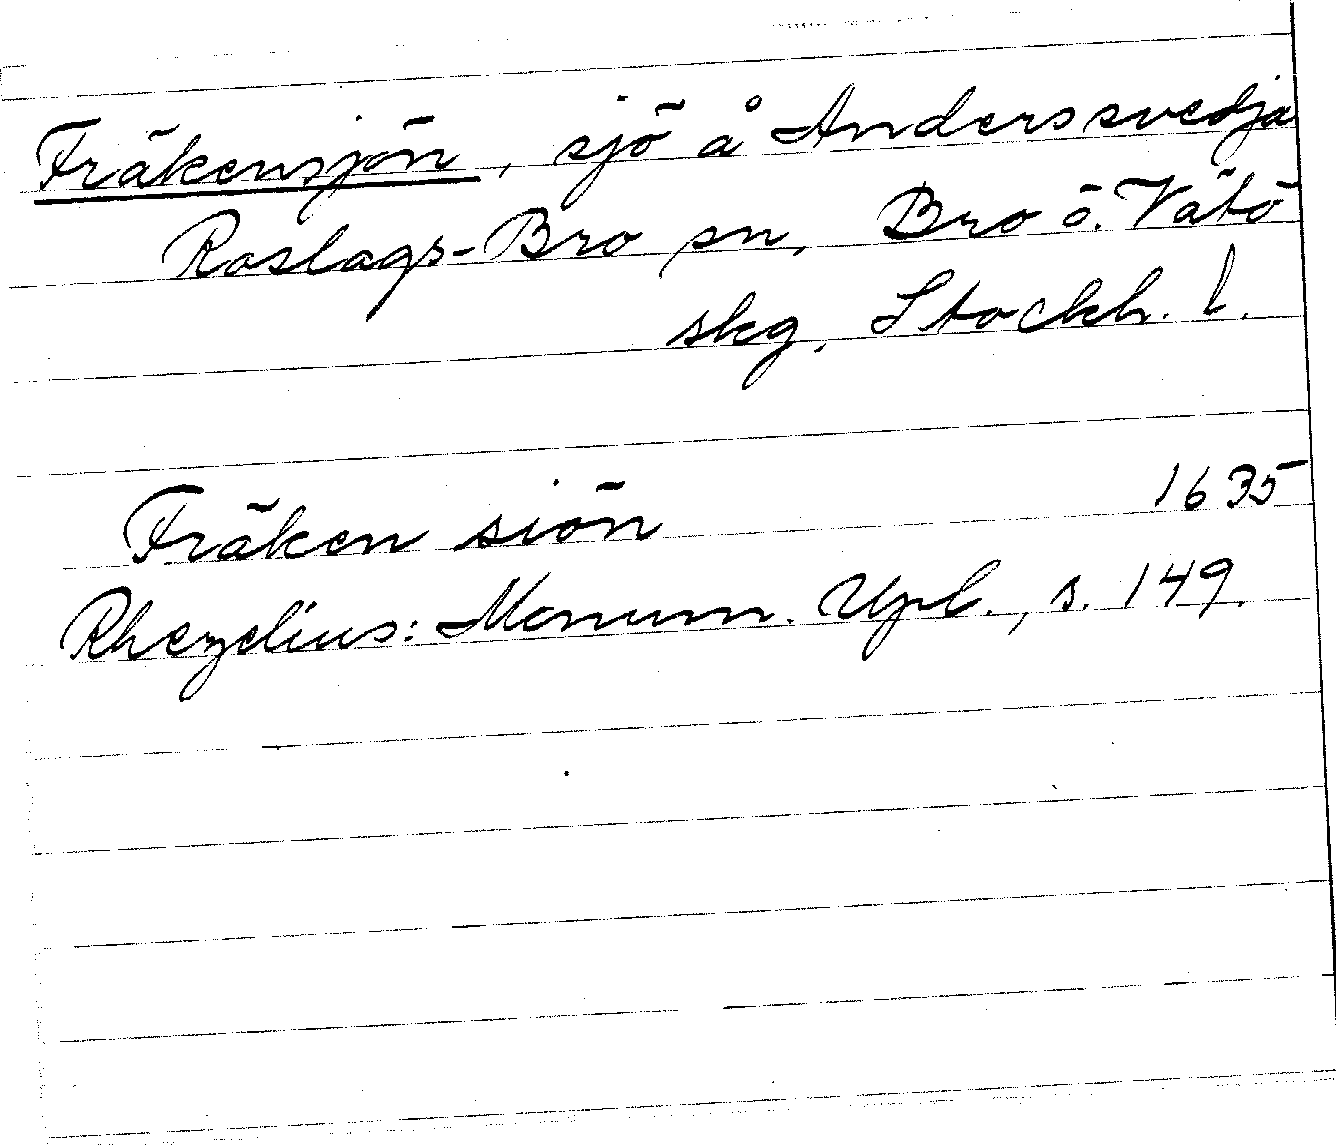 Fräkensjön, sjö å Anderssvedja
Roslags-Bro sn, Bro o. Vätö
skg, Stockh. l.
Fräken siön 1635
Rhezelius: Monum. Upl., s. 149.